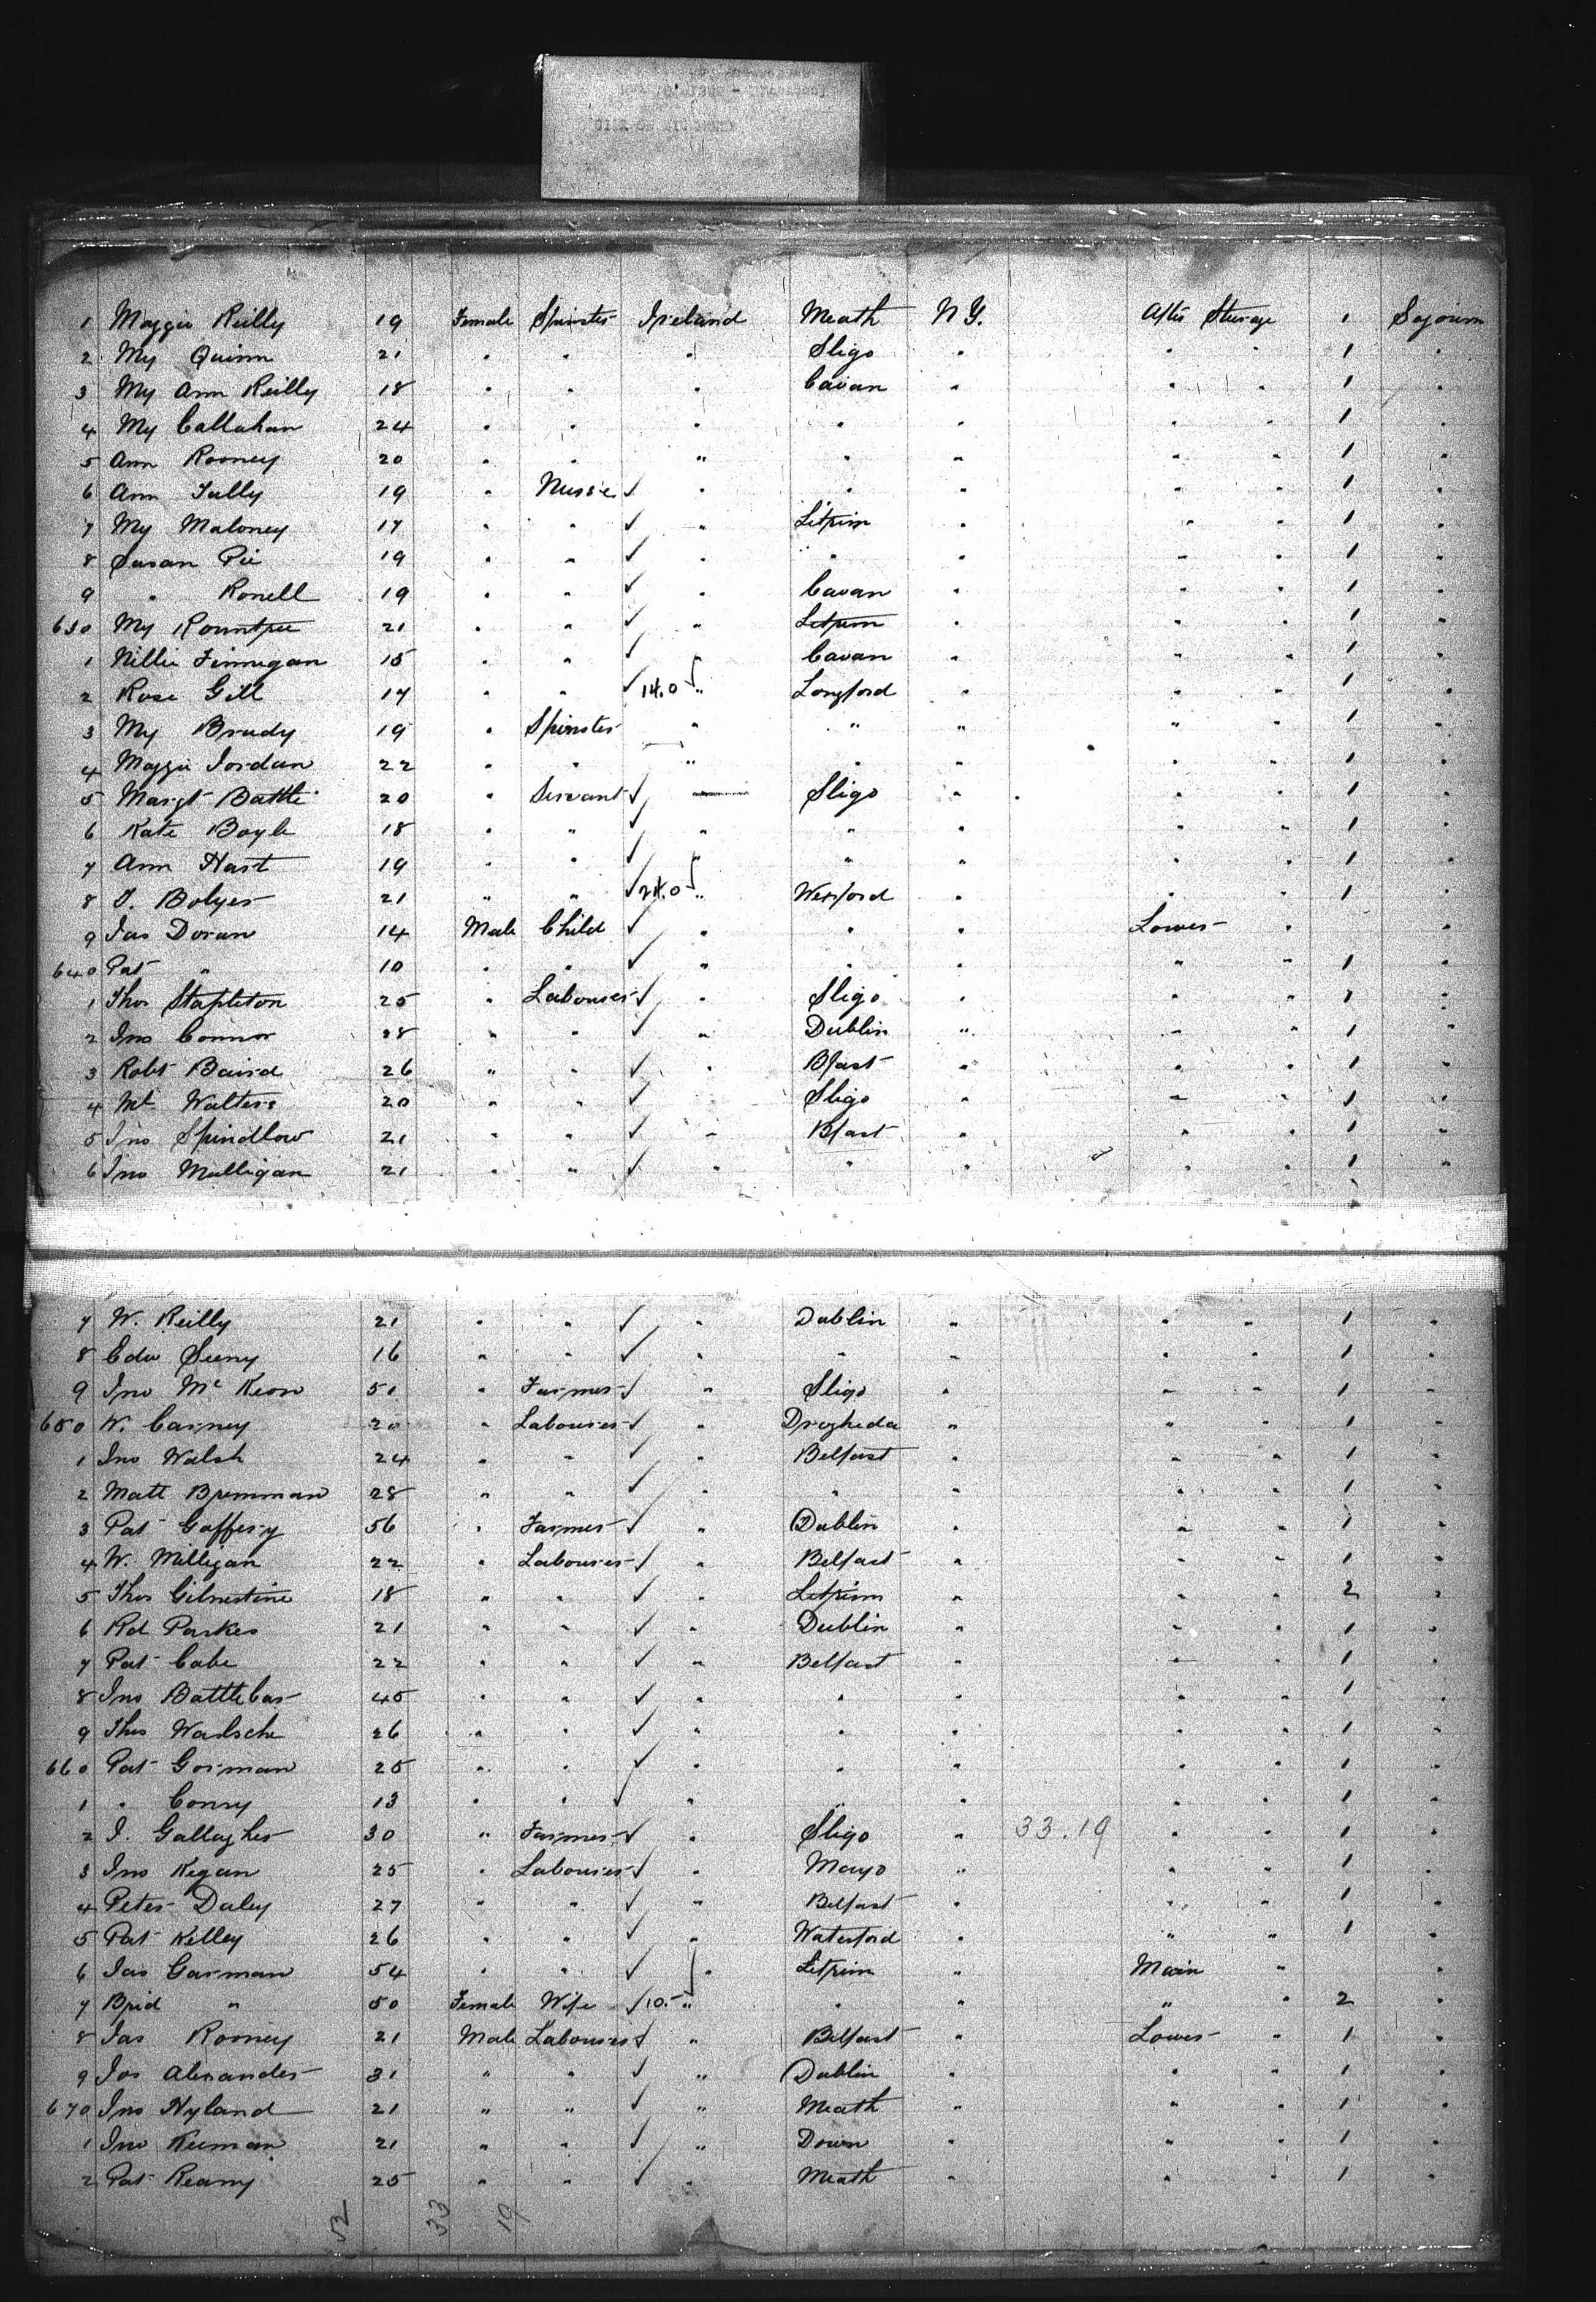 1 Maggie Reilly 19 Female Spinster Ireland Meath N Y. After Steerage 1 Sojourn
2 My Quinn 21 " " " Sligo " " " 1 "
3 My Ann Reilly 18 " " " Cavan " " " 1 "
4 My Callahan 24 " " " " " " " 1 "
5 Ann Rooney 20 " " " " " " " 1 "
6 Ann Tully 19 " Nurse ✓ " " " " " 1 "
7 My Maloney 17 " " ✓ " Letrim " " " 1 "
8 Susan Pie 19 " " ✓ " " " " " 1 "
9 " Ronell 19 " " ✓ " Cavan " " " 1 "
630 My Rountree 21 " " ✓ " Letrim " " " 1 "
1 Nellie Finnegan 15 " " ✓ Cavan " " " 1 "
2 Rose Gill 17 " " ✓ 14.0 " Longford " " " 1 "
3 My Brady 19 " Spinster " " " " " 1 "
4 Maggie Jordan 22 " " " " " " " 1 "
5 Margt Battle 20 " Servant ✓ — Sligo " " " 1 "
6 Kate Boyle 18 " " ✓ " " " " " 1 "
7 Ann Hart 19 " " ✓ " " " " 1 "
8 J. Bolger 21 " " ✓ 24.0 " Wexford " " " 1 "
9 Jas Doran 14 Male Child ✓ " " " Lower " "
640 Pat " 10 " " ✓ " " " " " 1 "
1 Thos Stapleton 25 " Labourer ✓ " Sligo " " " 1 "
2 Jno Connor 28 " " ✓ " Dublin " " " 1 "
3 Robt Baird 26 " " ✓ " Bfast " " " 1 "
4 Mt. Walters 20 " " ✓ Sligo " " " 1 "
5 Jno Spindlow 21 " " ✓ " Bfast " " " 1 "
6 Jno Mulligan 21 " " ✓ " " " " " 1 "
7 W. Reilly 21 " " ✓ " Dublin " " " 1 "
8 Edw Seeny 16 " " ✓ " " " " " 1 "
9 Jno Mc Keon 51 " Farmer ✓ " Sligo " " " 1 "
650 W. Carney 20 " Labourer ✓ " Drogheda " " " 1 "
1 Jno Walsh 24 " " ✓ " Belfast " " " 1 "
2 Matt Bremman 28 " " ✓ " " " " " 1 "
3 Pat Gaffery 56 " Farmer ✓ " Dublin " " " 1 "
4 W. Milligan 22 " Labourer ✓ " Belfast " " " 1 "
5 Thos Gilmestine 18 " " ✓ " Letrim " " " 2 "
6 Rd Parker 21 " " ✓ " Dublin " " " 1 "
7 Pat Cabe 22 " " ✓ " Belfast " " " 1 "
8 Jno Battlebar 45 " " ✓ " " " " " 1 "
9 Thos Warlsche 26 " " ✓ " " " " " 1 "
660 Pat Gorman 25 " " ✓ " " " " " 1 "
1 " Conry 13 " " ✓ " " " " " 1 "
2 J. Gallagher 30 " Farmer ✓ " Sligo " 33.19 " " 1 "
3 Jno Kegan 25 " Labourer ✓ " Mayo " " " 1 "
4 Peter Daley 27 " " ✓ " Belfast " " " 1 "
5 Pat Kelley 26 " " ✓ " Waterford " " " 1 "
6 Jas Garman 54 " " ✓ " Letrim " Main " "
7 Brid " 50 Female Wife ✓ 10.- " " " " " 2 "
8 Jas Rooney 21 Male Labourer ✓ " Belfast " Lower " 1 "
9 Jos Alexander 31 " " ✓ " Dublin " " " 1 "
670 Jno Hyland 21 " " ✓ " Meath " " " 1 "
1 Jno Keeman 21 " " ✓ " Down " " " 1 "
2 Pat Reamy 25 " " ✓ " Meath " " " 1 "
52 33 19